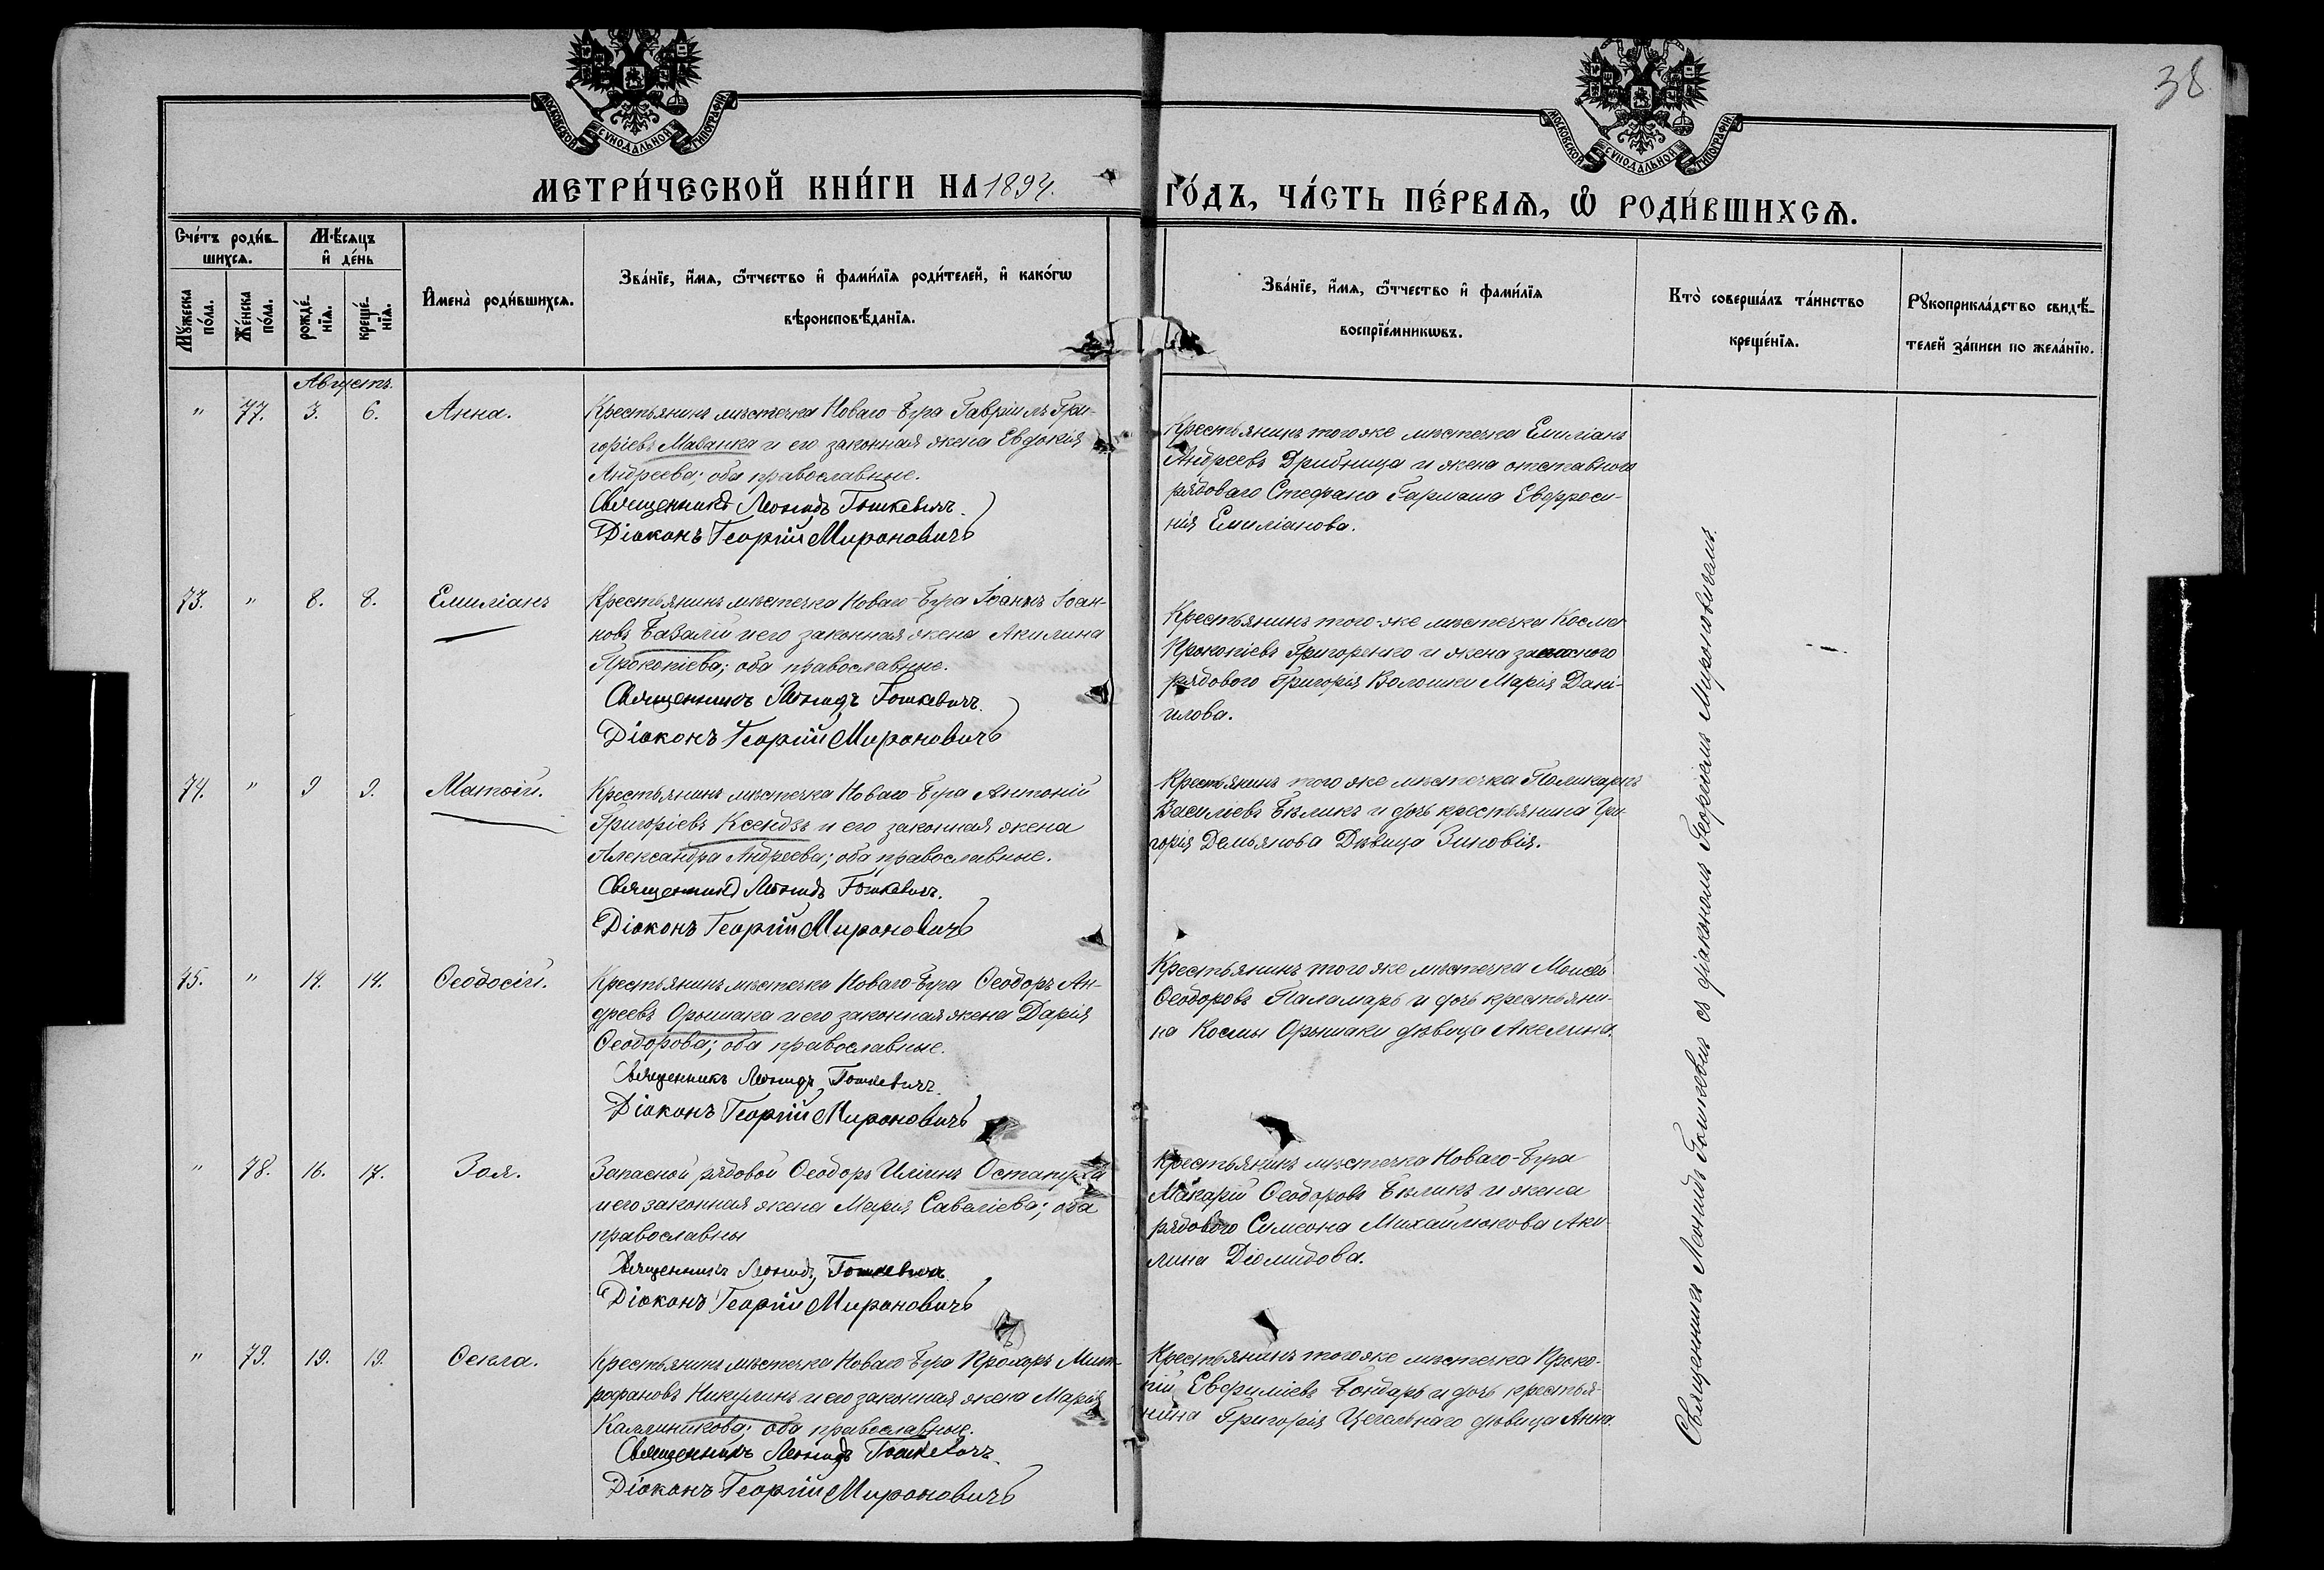 38
МОСКОВСКОЙ СУНОДАЛЬНОЙ ТИПОГРАФІИ
МОСКОВСКОЙ СУНОДАЛЬНОЙ ТИПОГРАФІИ
МЕТРИ́ЧЕСКОЙ КНИ́ГИ НА 1894.
ГО́ДЪ, ЧА́СТЬ ПЕ́РВАѦ, Ѡ҆ РОДИ́ВШИХСѦ.
Сче́тъ роди́в-
шихсѧ.
Мѣ́сѧцъ
и҆ де́нь
Мꙋ́жеска
по́ла.
Же́нска
по́ла.
рожде́-
нїѧ.
креще́-
нїѧ.
И҆мена̀ роди́вшихсѧ.
Зва́нїе, и҆́мѧ, ѻ҆́тчество и҆ фами́лїѧ роди́телей, и҆ како́гѡ
вѣроисповѣ́данїѧ.
Зва́нїе, и҆́мѧ, ѻ҆́тчество и҆ фами́лїѧ
воспрїе́мникѡвъ.
Кто̀ соверша́лъ та́инство
креще́нїѧ.
Рꙋкоприкла́дство свидѣ́-
телей за́писи по жела́нїю.
Августъ.
" 77. 3. 6. Анна.
Крестьянинъ мѣстечка Новаго-Буга Гавріилъ Гри-
горіевъ Мазанка и его законная жена Евдокія
Андреева; оба православные.
Священникъ Леонидъ Гошкевичъ.
Діаконъ Георгій Мироновичъ
Крестьянинъ того же мѣстечка Емиліанъ
Андреевъ Дрибница и жена отставного
рядоваго Стефана Гармаша Евфроси-
нія Емиліанова.
73. " 8. 8. Емиліанъ
Крестьянинъ мѣстечка Новаго-Буга Іоаннъ Іоан-
новъ Базалій и его законная жена Акилина
Прокопіева; оба православные.
Священникъ Леонидъ Гошкевичъ.
Діаконъ Георгій Мироновичъ
Крестьянинъ того-же мѣстечка Косма
Прокопіевъ Григоренко и жена запасного
рядового Григорія Волошки Марія Дані-
илова.
74. " 9 9. Матѳій.
Крестьянинъ мѣстечка Новаго-Буга Антоній
Григоріевъ Ксендзъ и его законная жена
Александра Андреева; оба православные.
Священникъ Леонидъ Гошкевичъ.
Діаконъ Георгій Мироновичъ
Крестьянинъ того же мѣстечка Поликарпъ
Василіевъ Бѣликъ и дочь крестьянина Гри-
горія Демьянова Дѣвица Зиновія.
75. " 14. 14. Ѳеодосій.
Крестьянинъ мѣстечка Новаго-Буга Ѳеодоръ Ан-
дреевъ Орышака и его законная жена Дарія
Ѳеодорова; оба православные.
Священникъ Леонидъ Гошкевичъ.
Діаконъ Георгій Мироновичъ
Крестьянинъ того же мѣстечка Моисей
Ѳеодоровъ Паламарь и дочь крестьяни-
на Космы Орышаки дѣвица Акелина.
" 78. 16. 17. Зоя.
Запасной рядовой Ѳеодоръ Иліинъ
и его законная жена Марія Савеліева; оба
православны
Священникъ Леонидъ Гошкевичъ
Діаконъ Георгій Мироновичъ
Крестьянинъ мѣстечка Новаго-Буга
Макарій Ѳеодоровъ Бѣликъ и жена
рядового Симеона Михайлюкова Аки-
лина Діомидова.
" 79. 19. 19. Ѳекла.
Крестьянинъ мѣстечка Новаго-Буга Прохоръ Мит-
рофановъ Никулинъ и его законная жена Марія
Каллиникова; оба православные.
Священникъ Леонидъ Гошкевичъ.
Діаконъ Георгій Мироновичъ
Крестьянинъ того же мѣстечка Проко-
пій Евфиміевъ Бондарь и дочь крестья-
нина Григорія Цегельнаго дѣвица Анна.
Священникъ Леонидъ Гошкевичъ съ діакономъ Георгіемъ Мироновичемъ.